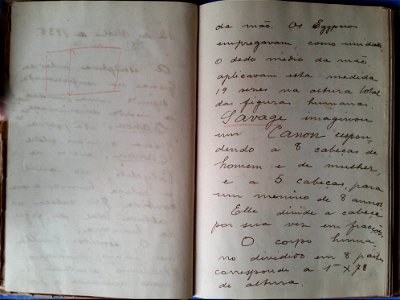 da mão. Os Egypcios
empregavam, como unidade
o dedo medio da mão
aplicavam esta medida
19 vezes na altura total
das figuras humanas.
Savage imaginou
um Canon respon-
dendo a 8 cabeças de
homem e de mulher,
e a 5 cabeças, para
um menino de 8 annos
Elle divide a cabeça
por sua vez em fracções.
O corpo huma-
no dividido em 8 partes
corresponde a 1m X 78
de altura.